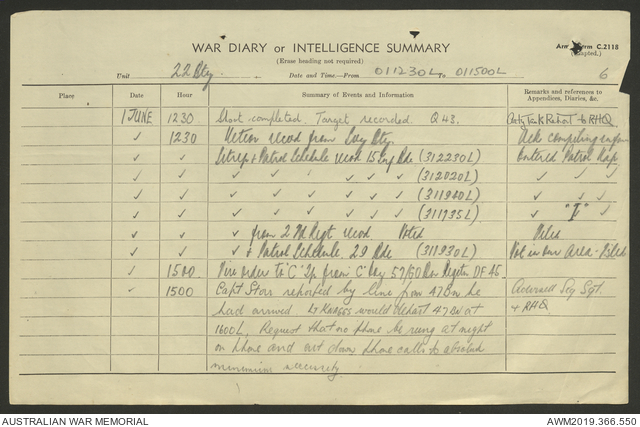 WAR DIARY or INTELLIGENCE SUMMARY
(Erase heading not required)
Army Form C.2118
(Adapted.)
Unit 22 Bty. Date and Time—From 011230L To 011500L
6
Place Date Hour Summary of Events and Information Remarks and references to Appendices, Diaries, &c.
1 JUNE 1230 Shoot completed. Target recorded. Q 43. to RHQ
✓ 1230 Meteor recvd from Bty. Ack
✓ ✓ Sitreps & Patrol Schedule recvd 15 Bde (312230L) Entered Patrol Map
✓ ✓ ✓ ✓ ✓ ✓ (312020L) ✓ ✓ ✓
✓ ✓ ✓ ✓ ✓ ✓ (311940L) ✓ ✓ ✓
✓ ✓ ✓ ✓ ✓ ✓ (311735L) ✓ "I" ✓
✓ ✓ ✓ from 2 Fd Regt recvd Noted Filed
✓ ✓ ✓ & Patrol Schedule 29 Bde (311930L) Not in our Area - Filed
✓ 1500 Fire order to "C" Tp from "C" Coy 57/60 Bn Register DF 45.
✓ 1500 Capt Storr reported by line from 47 Bn he
had arrived. Lt would depart 47 Bn at
1600L. Request that no phone be rung at night
on phone and cut down phone calls to absolute
minimum necessity.
Sig Sgt.
& RHQ
AUSTRALIAN WAR MEMORIAL
AWM2019.366.550